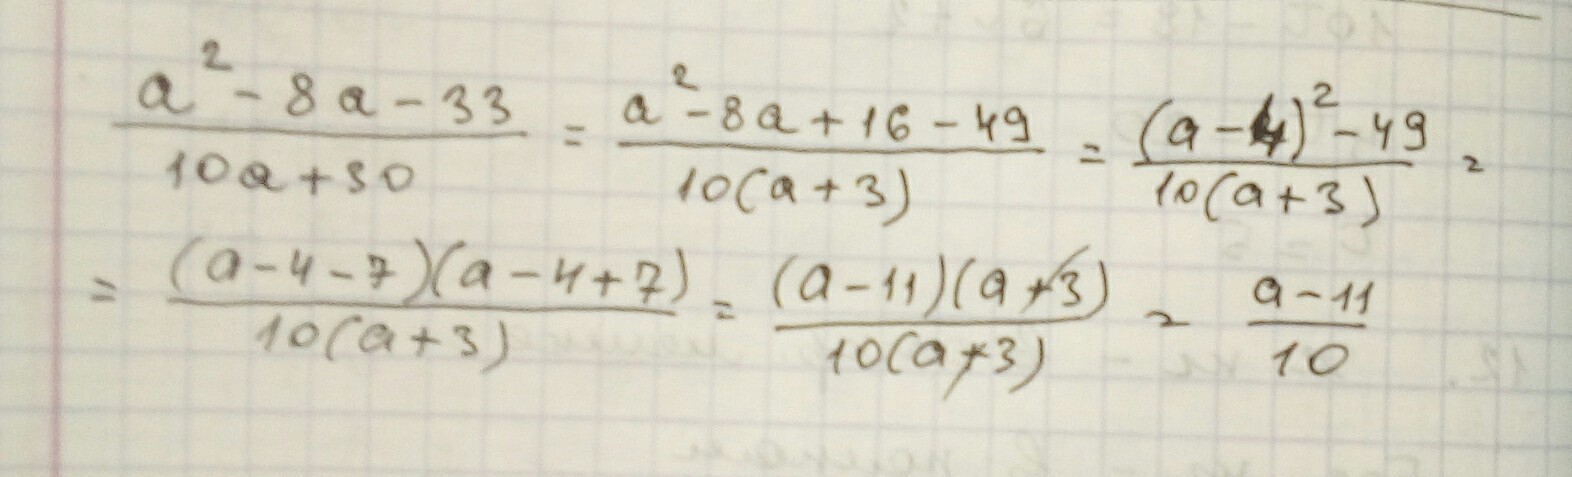 (a² - 8a - 33)/(10a + 30) = (a² - 8a + 16 - 49)/(10(a + 3)) = ((a - 4)² - 49)/(10(a + 3)) =
= ((a - 4 - 7)(a - 4 + 7))/(10(a + 3)) = ((a - 11)(a + 3))/(10(a + 3)) = (a - 11)/10